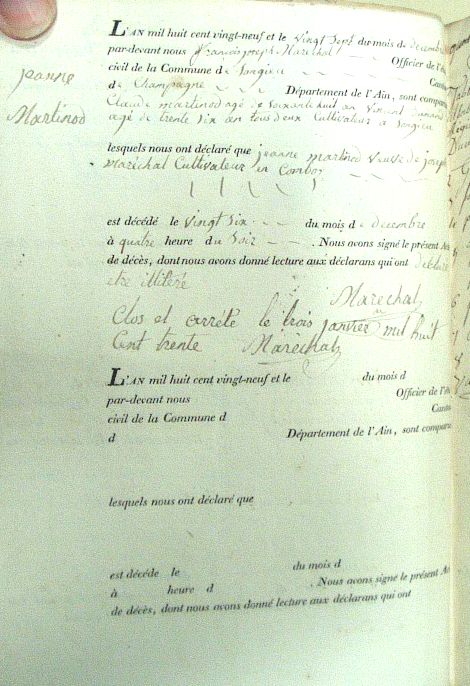 L'AN mil huit cent vingt-neuf et le vingt Sept du mois d e decembre
par-devant nous françois joseph Marechal Officier de l'é
civil de la Commune d e Songieu Canto
d e Champagne Département de l'Ain, sont compara
Claude martinod agé de Soixante huit an Vincent
agé de trente Six an tous deux Cultivateur a Songieu
jeanne
Martinod
lesquels nous ont déclaré que jeanne martinod veuve de joseph
maréchal Cultivateur en
est décédé le vingt Six du mois d e decembre
à quatre heure d u Soir . Nous avons signé le présent A
de décès, dont nous avons donné lecture aux déclarans qui ont déclaré
etre illiteré
Marechal
Clos et arrété le trois janvier mil huit
Cent trente Maréchal
L'AN mil huit cent vingt-neuf et le du mois d
par-devant nous Officier de l'é
civil de la Commune d Canto
d Département de l'Ain, sont compara
lesquels nous ont déclaré que
est décédé le du mois d
à heure d . Nous avons signé le présent A
de décès, dont nous avons donné lecture aux déclarans qui ont